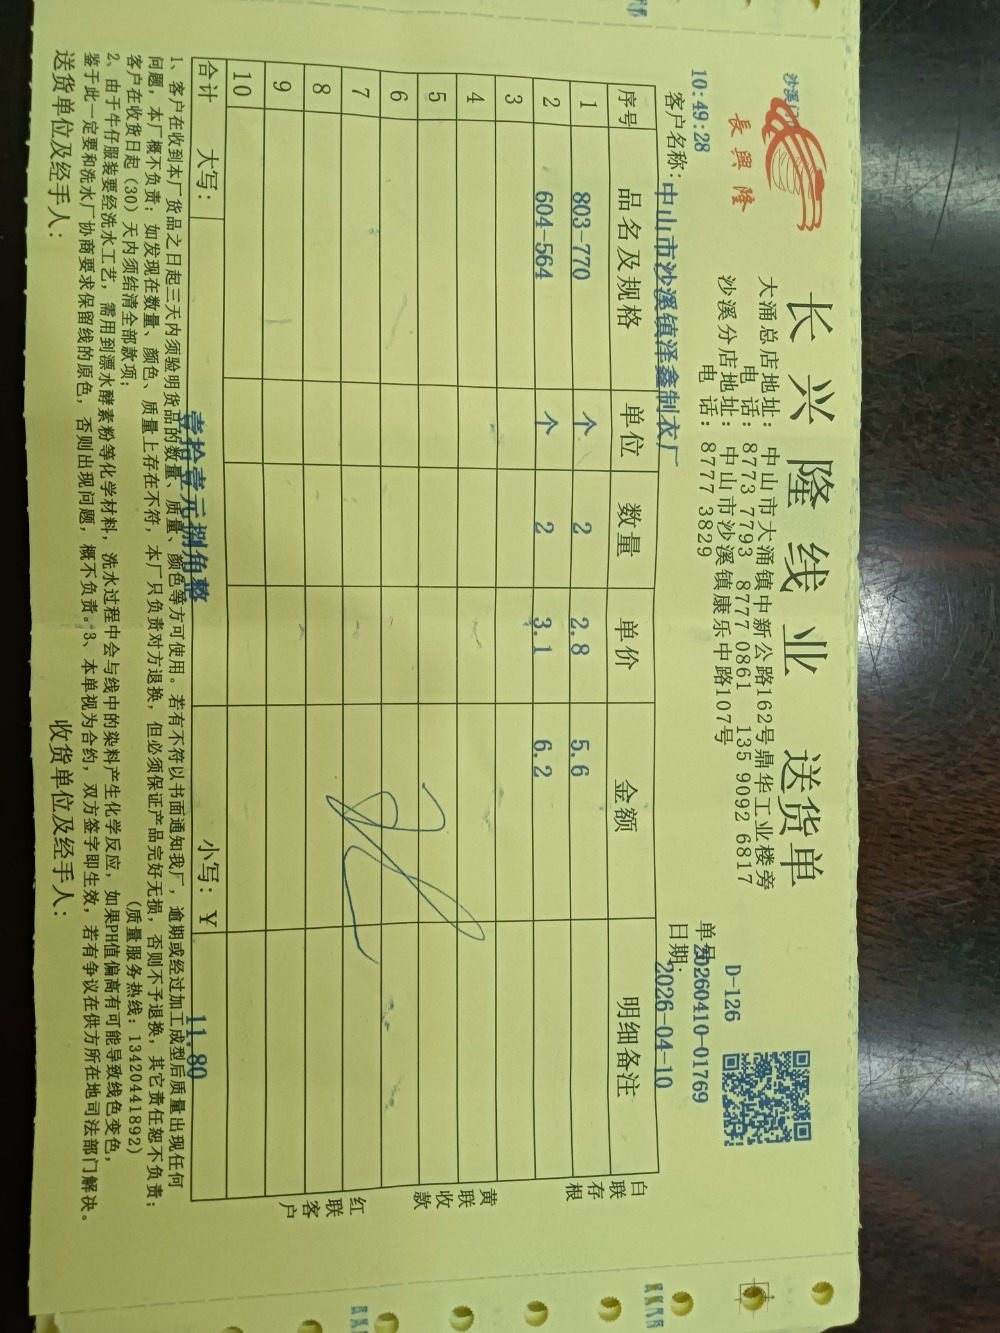 沙溪
長興隆
长兴隆线业 送货单
大涌总店地址：中山市大涌镇中新公路162号鼎华工业楼旁
电 话：8773 7793 8777 0861 135 9092 6817
沙溪分店地址：中山市沙溪镇康乐中路107号
电 话：8777 3829
D-126
10:49:28
单号：20260410-01769
客户名称：中山市沙溪镇泽鑫制衣厂
日期：2026-04-10
序号 品名及规格 单位 数量 单价 金额 明细备注
1 803-770 个 2 2.8 5.6
2 604-564 个 2 3.1 6.2
3
4
5
6
7
8
9
10
合计 大写： 壹拾壹元捌角整 小写：￥ 11.80
白联存根
黄联收款
红联客户
1、客户在收到本厂货品之日起三天内须验明货品的数量、质量、颜色等方可使用。若有不符以书面通知我厂，逾期或经过加工成型后质量出现任何
问题，本厂概不负责；如发现在数量、颜色、质量上存在不符，本厂只负责对方退换，但必须保证产品完好无损，否则不予退换，其它责任恕不负责；
客户在收货日起（30）天内须结清全部款项； （质量服务热线：13420441892）
2、由于牛仔服装要经洗水工艺，需用到漂水酵素粉等化学材料，洗水过程中会与线中的染料产生化学反应，如果PH值偏高有可能导致线色变色，
鉴于此一定要和洗水厂协商要求保留线的原色，否则出现问题，概不负责。3、本单视为合约，双方签字即生效，若有争议在供方所在地司法部门解决。
送货单位及经手人： 收货单位及经手人：